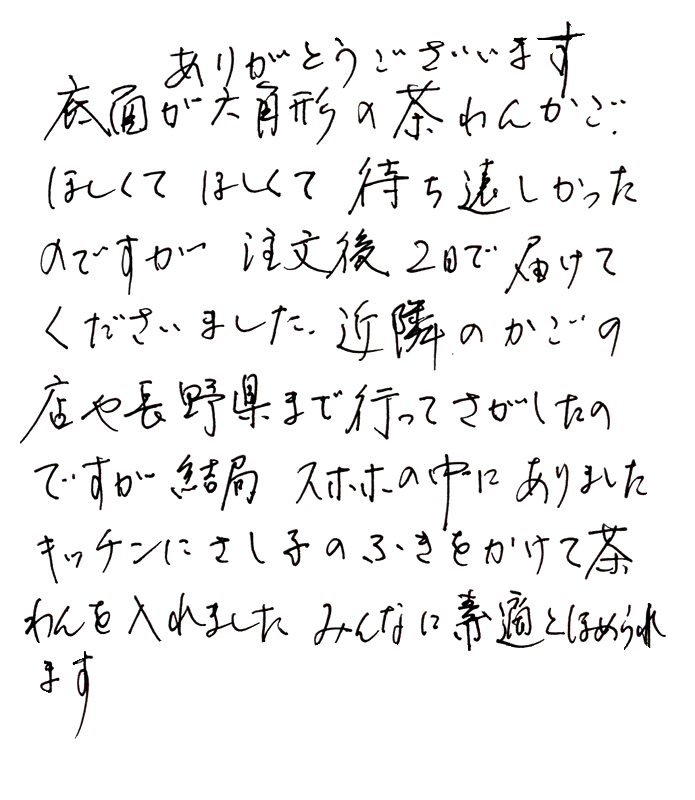 ありがとうございます
底面が六角形の茶わんかご.
ほしくて ほしくて 待ち遠しかった
のですが 注文後 2日で届けて
くださいました. 近隣のかごの
店や長野県まで行ってさがしたの
ですが 結局 スホホの中に ありました
キッチンにさし子のふきをかけて茶
わんを入れました みんなに素適とほめられ
ます